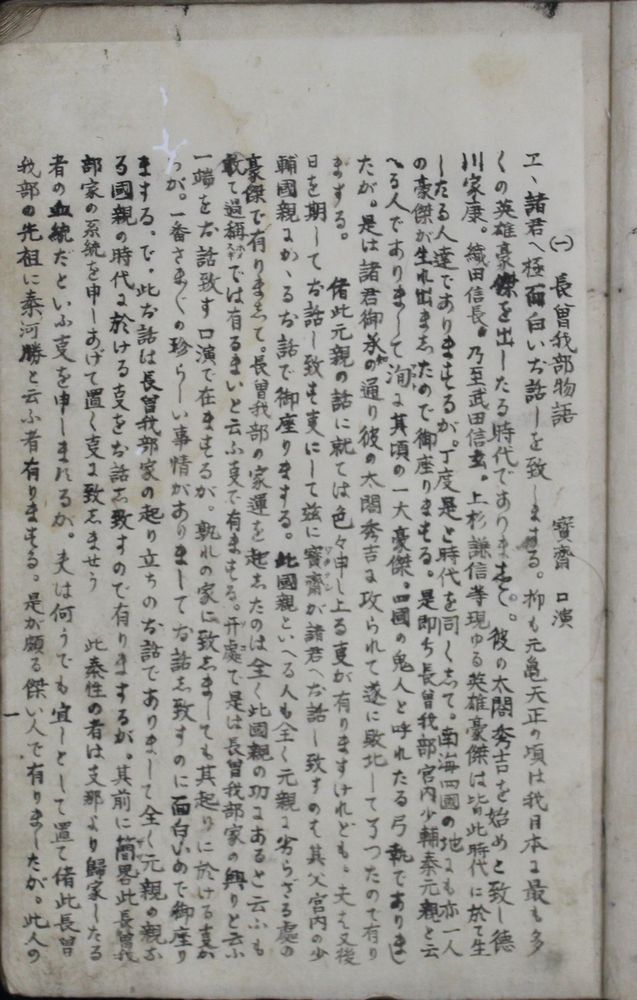 ㈠ 長曾我部物語 寳齋 口演
エ、諸君へ極面白いお話しを致しまする。抑も元亀天正の頃は我日本に最も多
くの英雄豪傑を出したる時代でありまして。彼の太閤秀吉を始めと致し德
川家康。織田信長。乃至武田信玄。上杉謙信等現ゆる英雄豪傑は皆此時代に於て生
したる人達でありまするが。丁度是と時代を同しくして。南海四國の地にも亦一人
の豪傑が生れ出ましたので御座りまする。是即ち長曾我部宮内少輔秦元親と云
へる人でありまして洵に其頃の一大豪傑。四國の鬼人と呼れたる弓執でありまし
たが。是は諸君御承知の通り彼の太閤秀吉に攻られて遂に敗北して了つたので有り
まする。 偖此元親の話に就ては色々申し上る事が有りますけれども。夫は又後
日を期してお話し致す事にして茲に寳齋が諸君へお話し致すのも其父宮内の少
輔國親にかゝるお話で御座りまする。此國親といへる人も全く元親に劣らざる處の
豪傑で有りまして。長曾我部の家運を起したのは全く此國親の功にあると云ふも
敢て過稱では有るまいと云ふ事で有まする。開處で是は長曾我部家の興りと云ふ
一端をお話致す口演で在まするが。孰れの家に致しましても其起りに於ける事か
らが。一番さまざまの珍らしい事情がありましてお話し致すのに面白いので御座り
まする。で。此お話は長曾我部家の起り立ちのお話でありまして全く元親の親な
る國親の時代に於ける事をお話し致すので有りまするが。其前に簡畧此長曾我
部家の系統を申しあげて置く事に致しませう 此秦性の者は支那より歸家したる
者の血統だといふ事を申しまするが。夫は何うでも宜しとして置て偖此長曾
我部の先祖に秦河勝と云ふ者有りまする。是が頗る傑い人で有りましたが。此人の
一